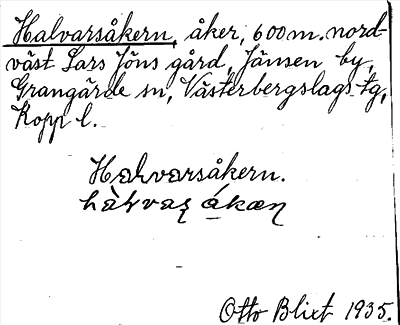 Halvarsåkern, åker, 600 m. nord-
väst Lars Jöns gård, Jänsen by,
Grangärde sn, Västerbergslags tg,
Kopp l.
Halvarsåkern.
Otto Blixt 1935.